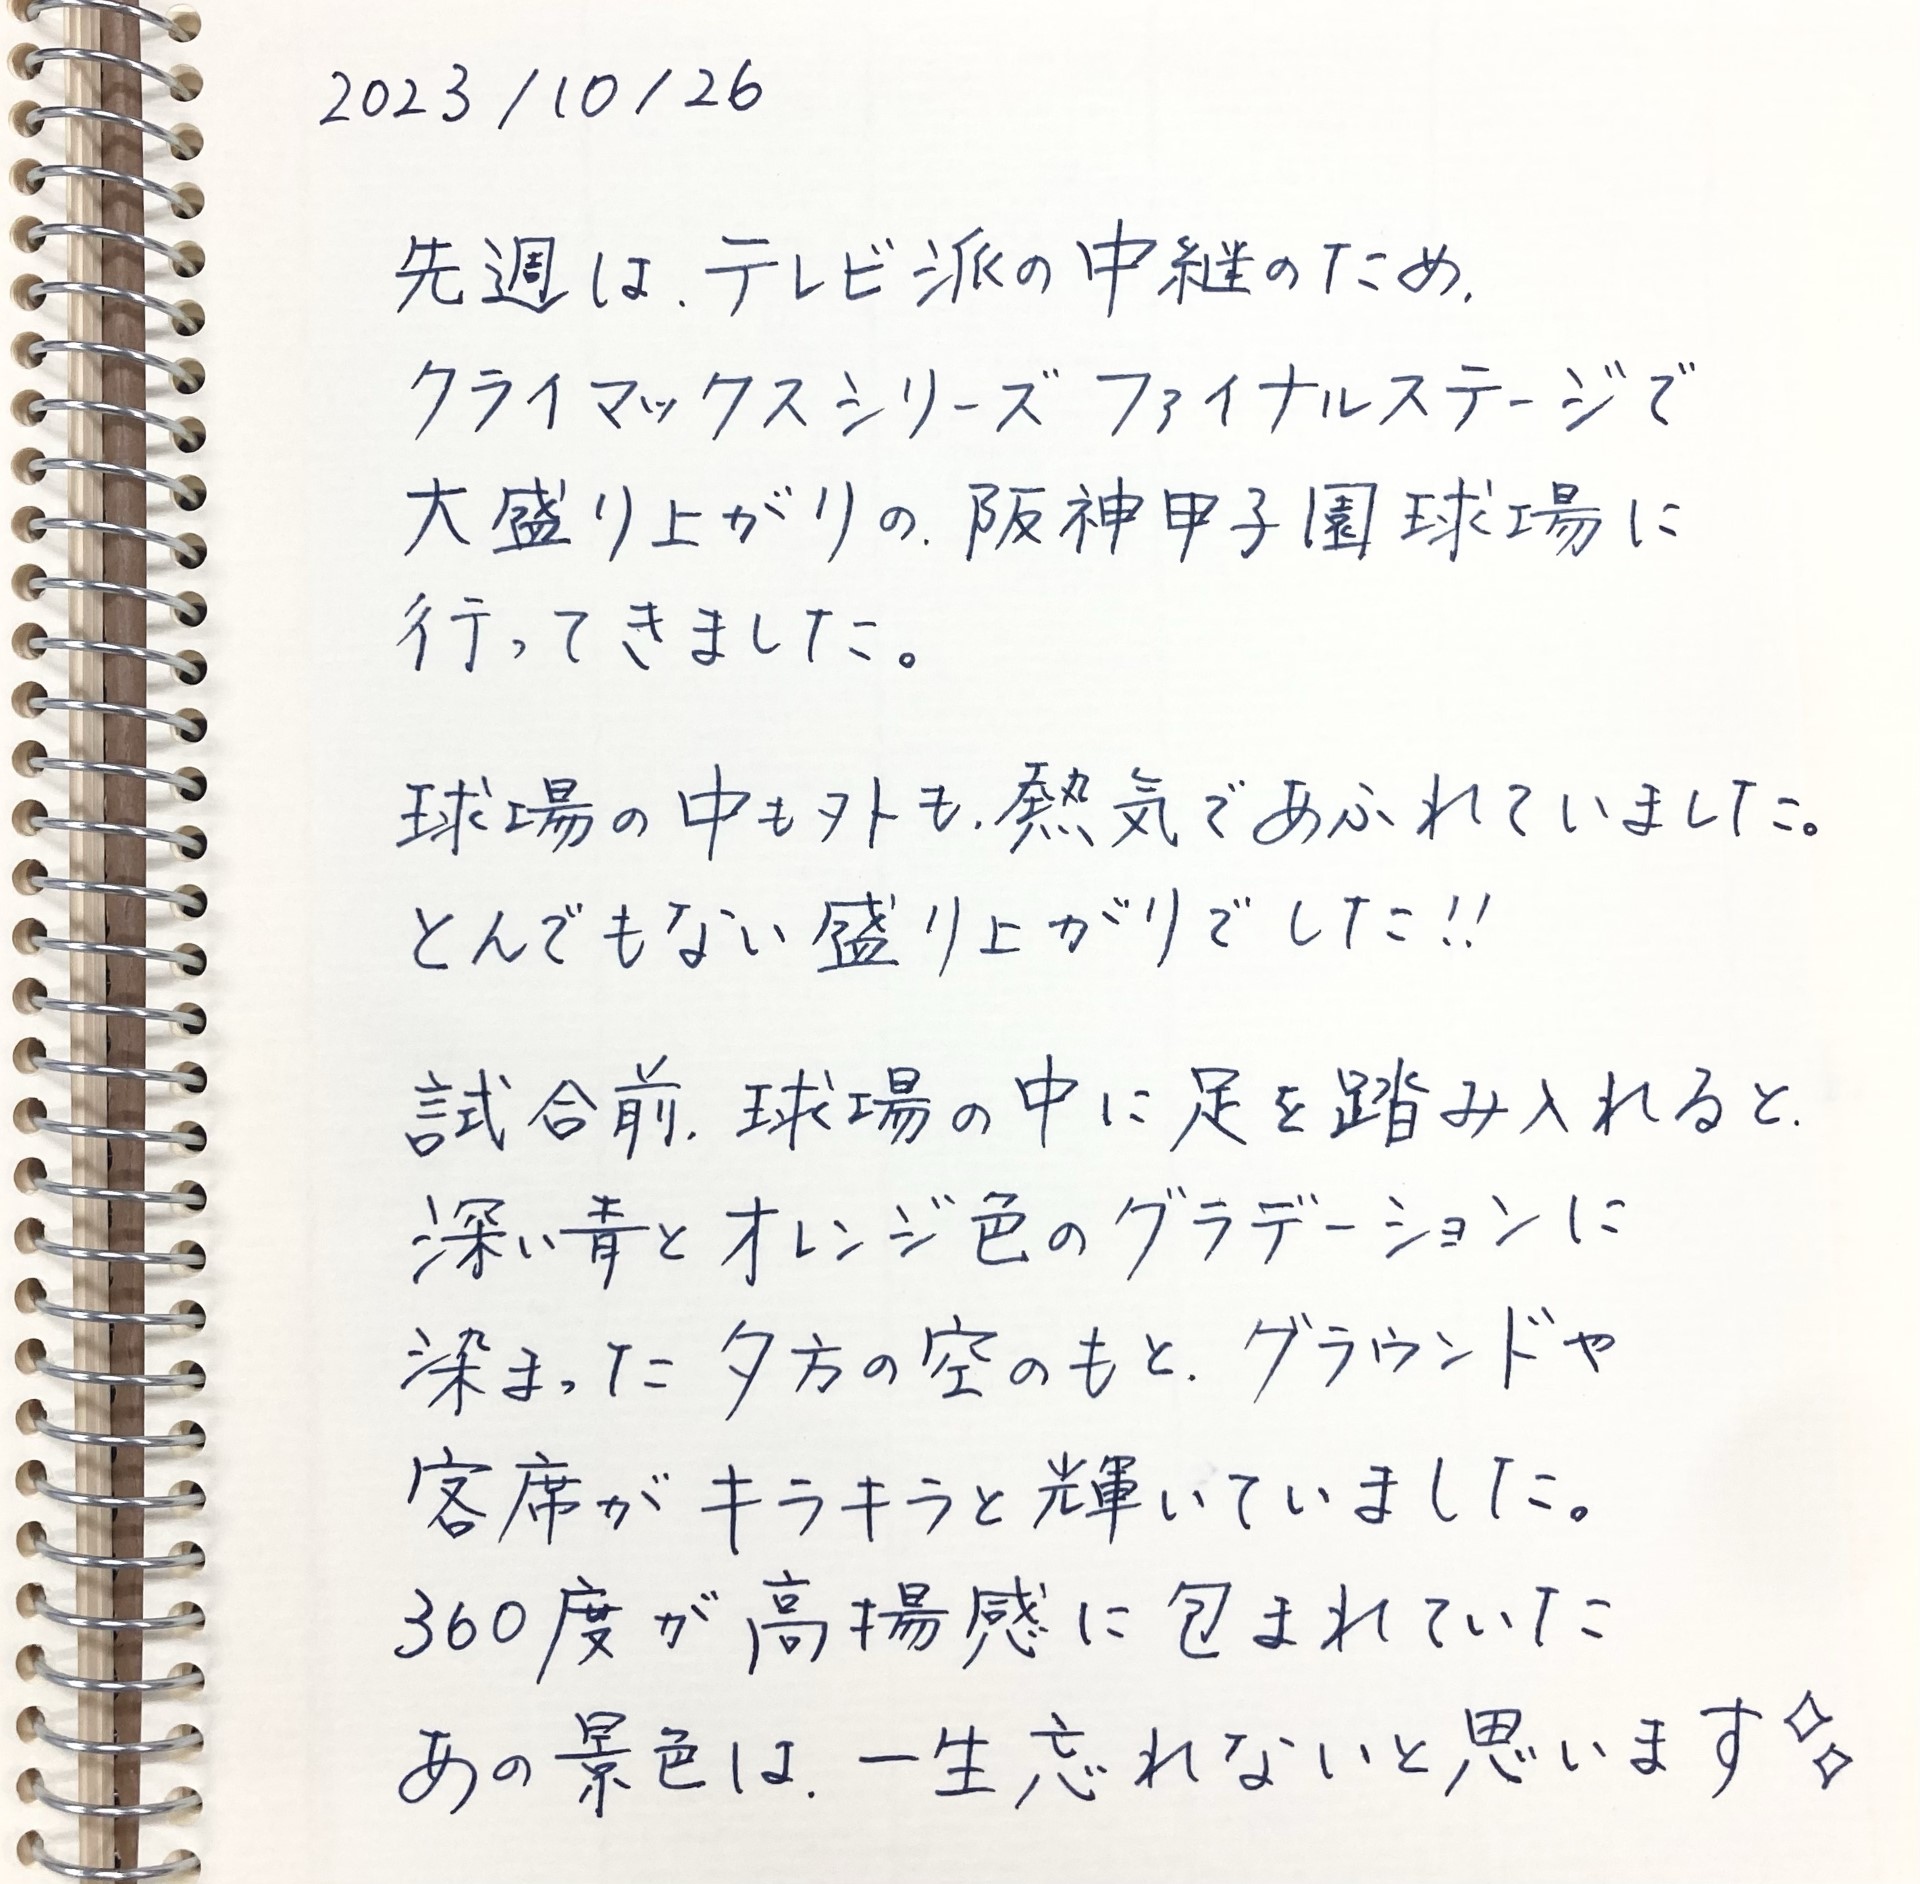 2023/10/26
先週は、テレビ派の中継のため、
クライマックスシリーズ ファイナルステージで
大盛り上がりの、阪神甲子園球場に
行ってきました。
球場の中も外も、熱気であふれていました。
とんでもない盛り上がりでした!!
試合前、球場の中に足を踏み入れると、
深い青とオレンジ色のグラデーションに
染まった夕方の空のもと、グラウンドや
客席がキラキラと輝いていました。
360度が高揚感に包まれていた
あの景色は、一生忘れないと思います